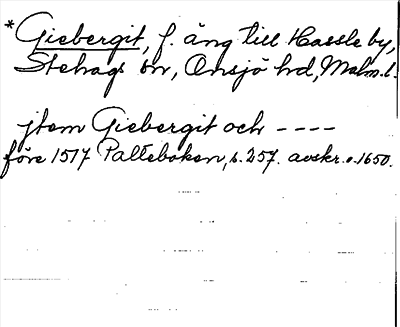 * Giebergit, f. äng till Hassle by,
Stehags sn, Onsjö hd, Malm. l.
jtem Giebergit och ----
före 1517 Palteboken, s. 257. avskr. o. 1650.